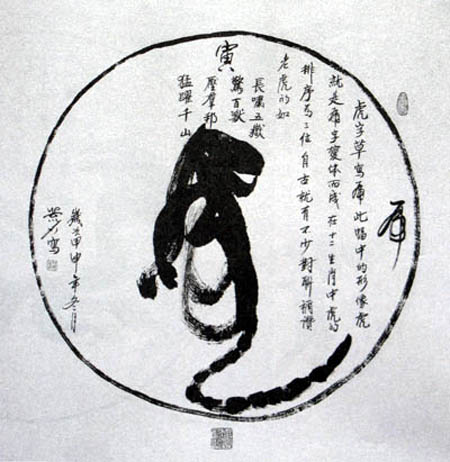 虎
虎字草写虎此幅中的形像虎
就是虎字變体而成在十二生肖中虎的
排序为三位自古就有不少對聯讚
老虎的如
寅
長嘯五嶽
驚百獸
壓羣邦
猛躍千山
歲次甲申年冬月
写